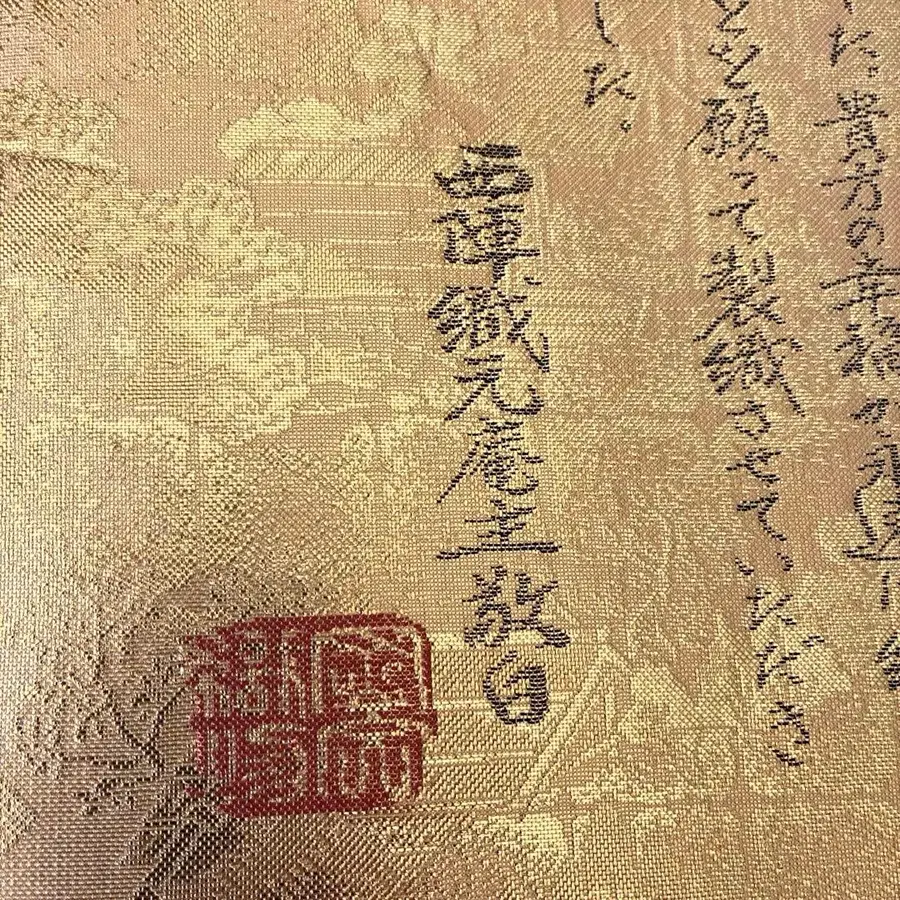 た。貴方の幸福が永遠に
とを願って製織させていただき
した。
西陣織元庵主敬白